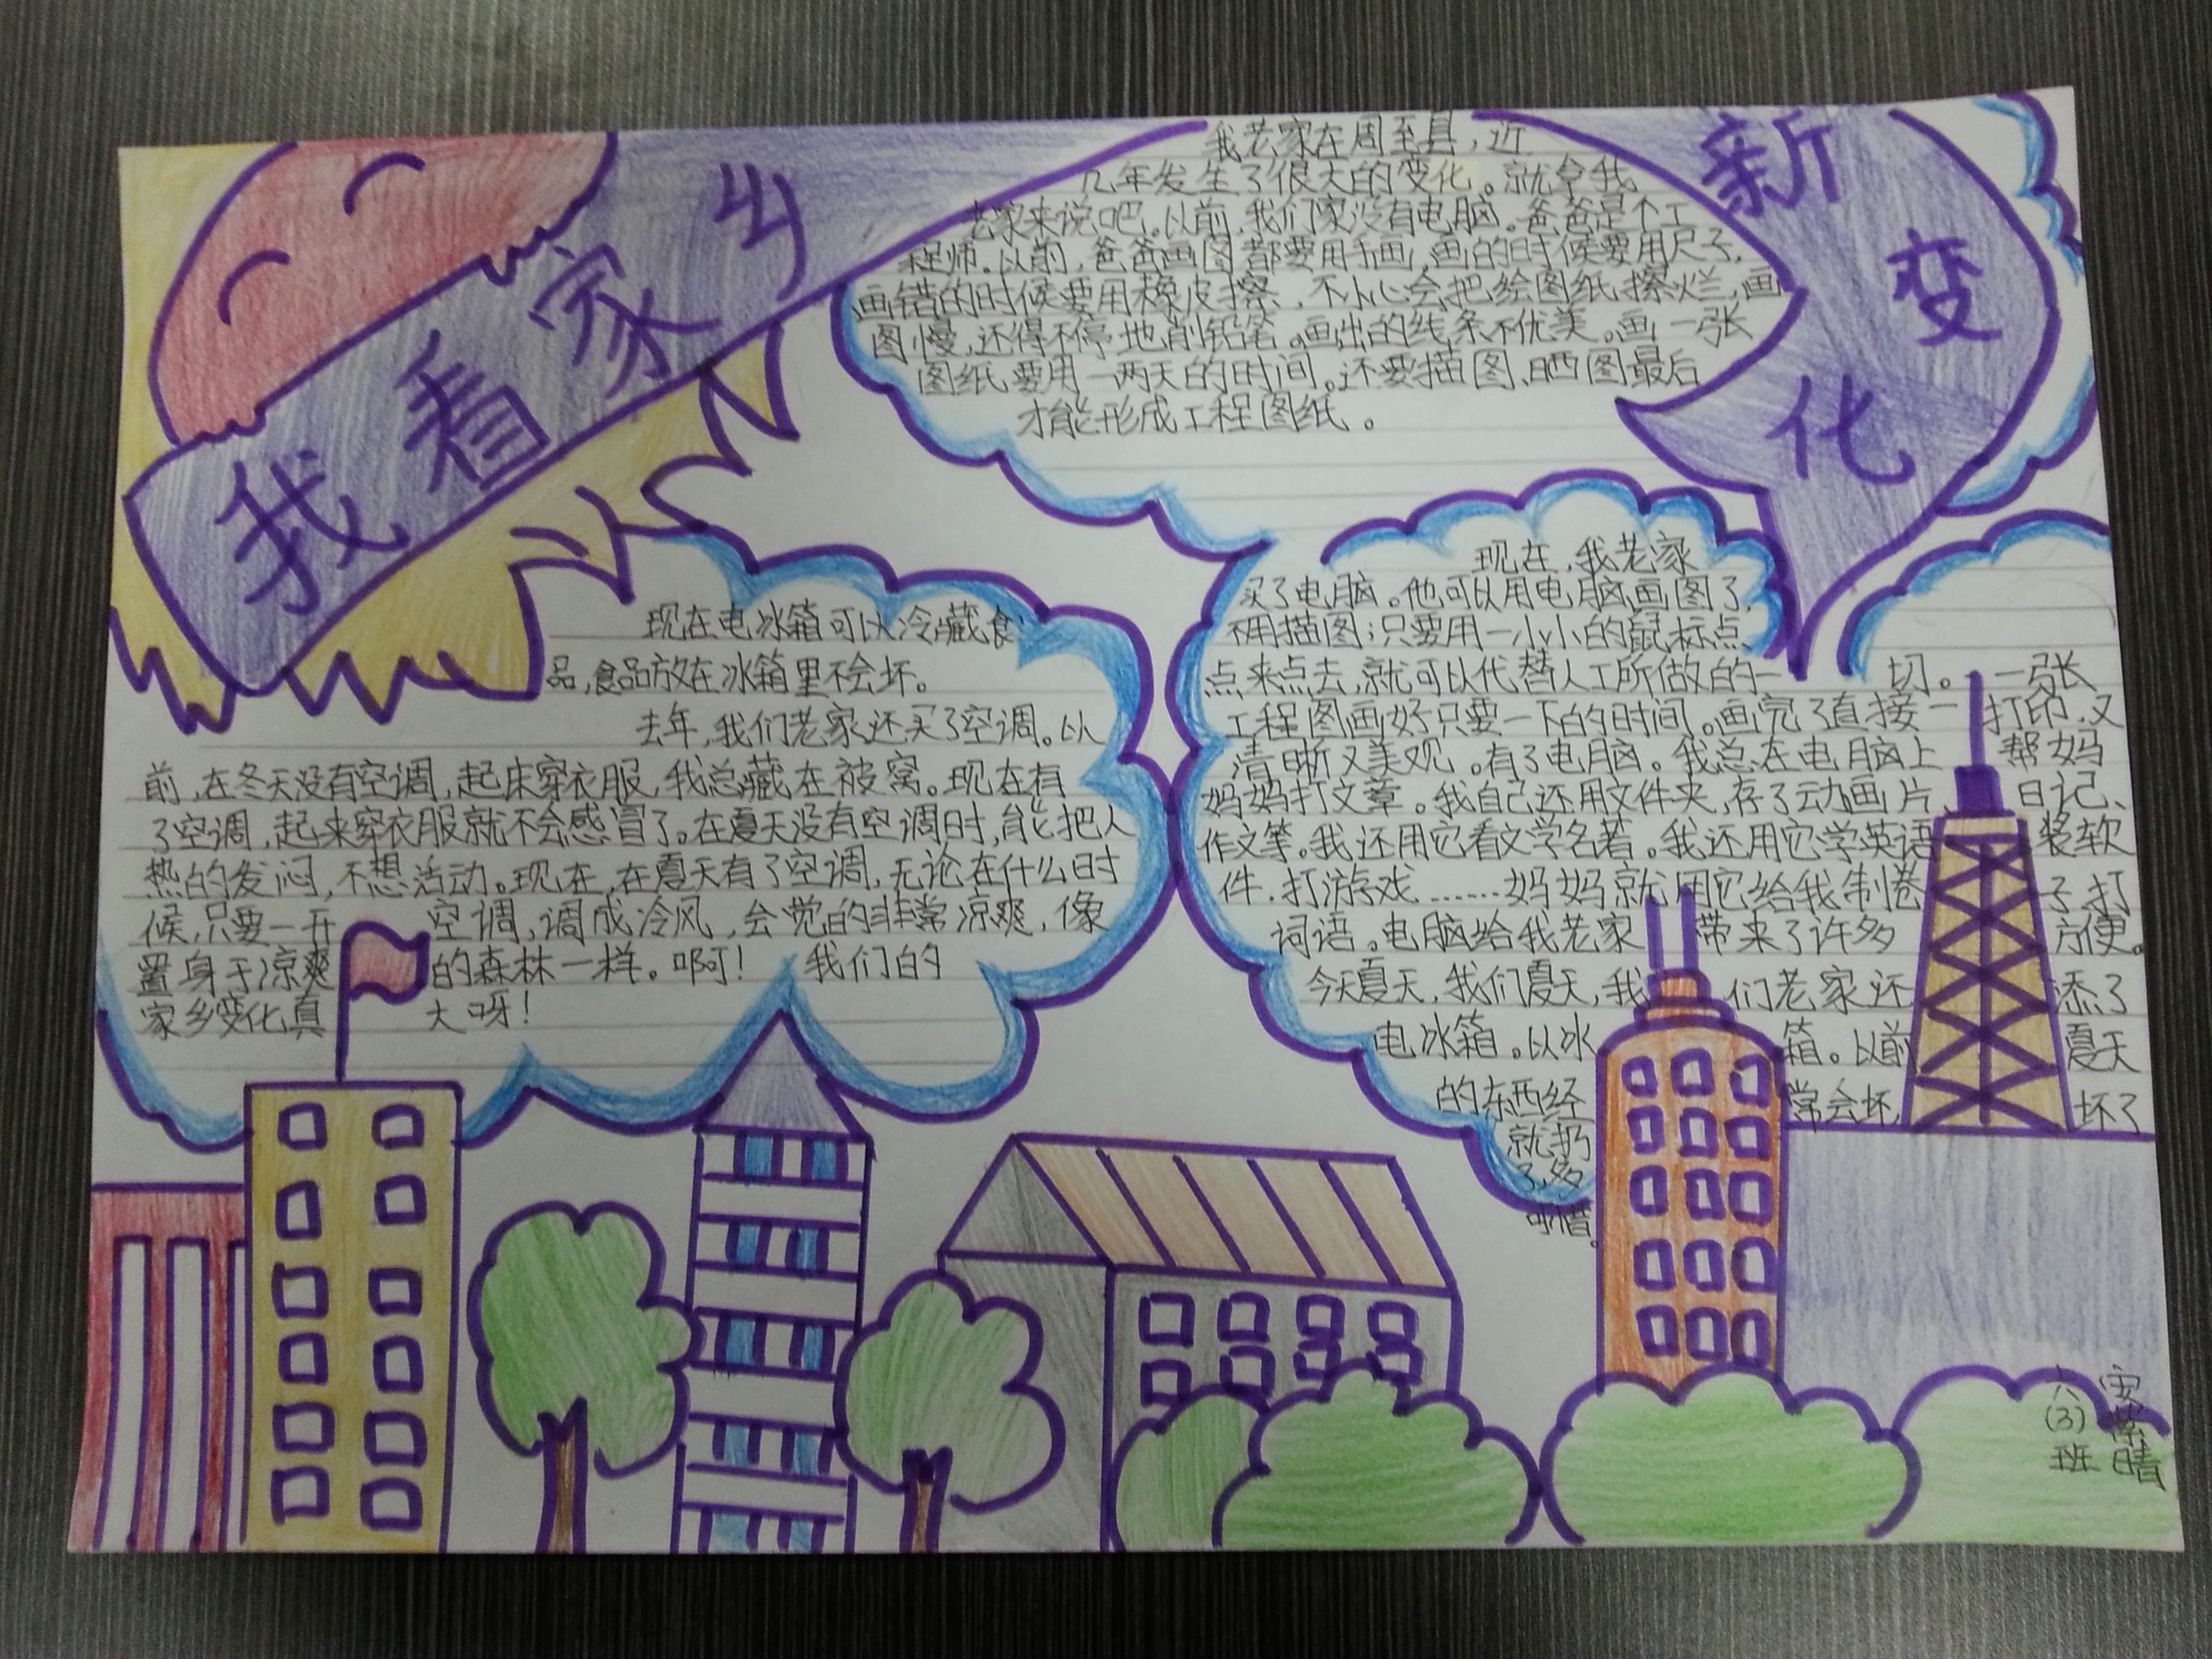 我看家乡
新变化
我老家在周至县，近
几年发生了很大的变化。就拿我
老家来说吧。以前，我们家没有电脑。爸爸是个工
程师。以前，爸爸画图都要用手画，画的时候要用尺子，
画错的时候要用橡皮擦，不小心会把绘图纸擦烂，画
图慢，还得不停地削铅笔。画出的线条不优美。画一张
图纸要用一两天的时间。还要描图、晒图最后
才能形成工程图纸。
现在，我老家
买了电脑。他可以用电脑画图了，
不用描图；只要用一小小的鼠标点
点来点去，就可以代替人工所做的一切。一张
工程图画好只要一下的时间。画完了直接一打印，又
清晰又美观。有了电脑。我总在电脑上帮妈
妈妈打文章。我自己还用文件夹，存了动画片、日记、
作文等。我还用它看文学名著。我还用它学英语装软
件，打游戏……妈妈就用它给我制卷子，打
词语。电脑给我老家带来了许多方便。
今天夏天，我们夏天，我们老家还添了
电冰箱。以冰箱。以前夏天
的东西经常会坏，坏了
就扔
了，多
可惜。
现在电冰箱可以冷藏食
品，食品放在冰箱里不会坏。
去年，我们老家还买了空调。以
前，在冬天没有空调，起床穿衣服，我总藏在被窝。现在有
了空调，起来穿衣服就不会感冒了。在夏天没有空调时，能把人
热的发闷，不想活动。现在，在夏天有了空调，无论在什么时
候，只要一开空调，调成冷风，会觉的非常凉爽，像
置身于凉爽的森林一样。啊！我们的
家乡变化真大呀！
六(3)班
晴